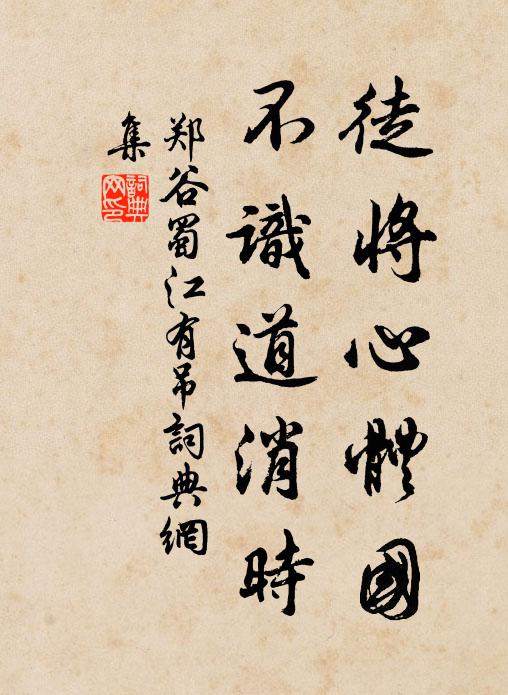 徒將心體國
不識道消時
郑谷蜀江有吊詞典網
集
詞典網印